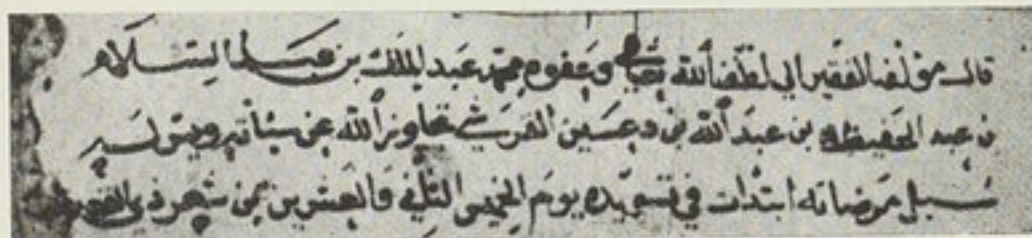 قال مؤلفه الفقير الى لطف الله تعالى وعفوه محمد عبد الملك بن عبد السلام
بن عبد الحفيظ بن عبد الله بن دعسين القرشي تجاوز الله عن سيئاته ويسر
سبل مرضاته ابتدات في تسويده يوم الخميس الثاني والعشرين من شهر ذي